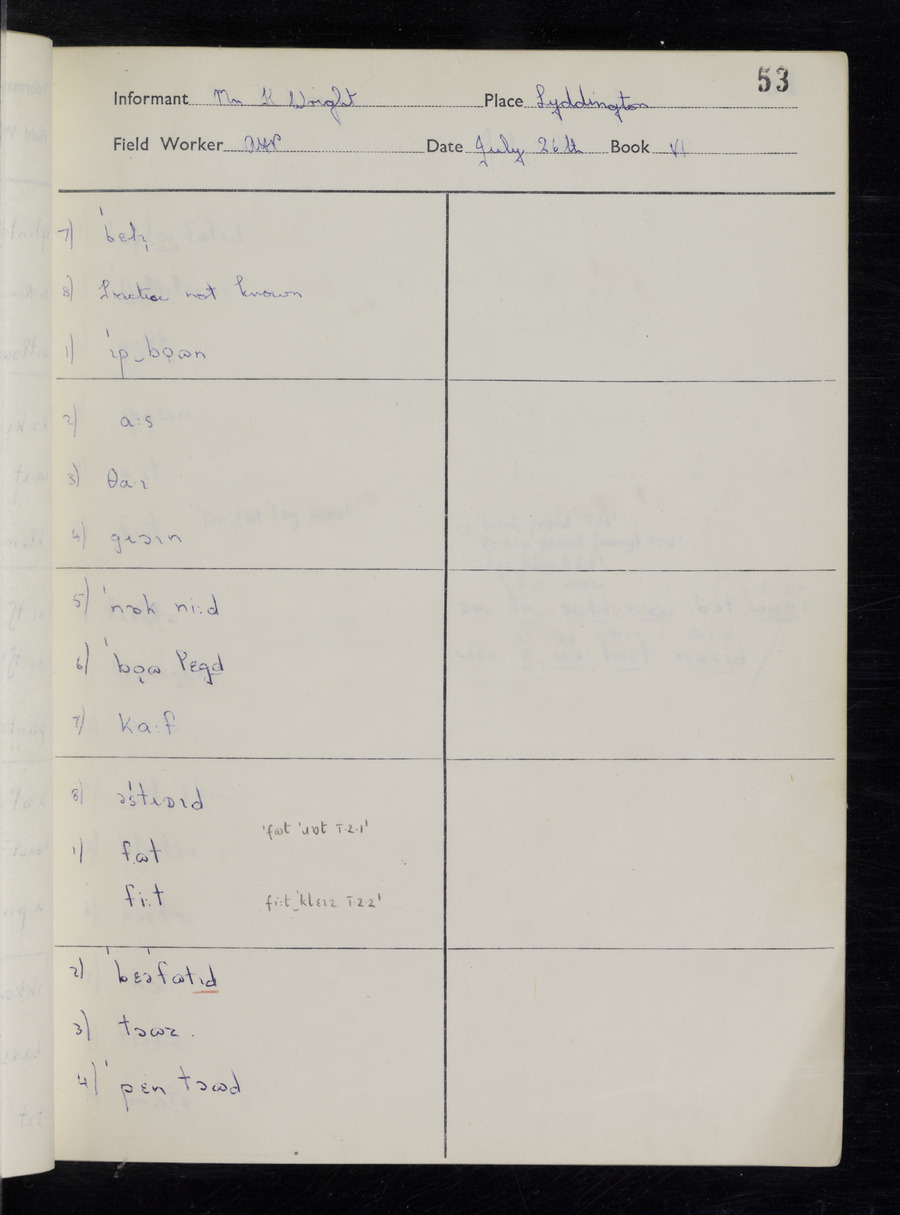 53
Informant Mr K Wright Place Lyddington
Field Worker Date July 26th Book VI
7) ˈbɛlɪ
8) Practice not known
1) ˈɪp‿bo̜ɷn
2) a:s
3) θa·ɪ
4) gɹɔɪn
5) ˈnɔk ni:d
6) ˈbo̜ɷ lɛgd
7) ka:f
8) əˈstɹɒɪd
ˈfɷt ˈɹɒt I.2.1
1) fɷt
fi:t fi:t‿ˈklɛɪz I.2.2
2) ˈbɛəˈfɷtɪd
3) tɔɷz.
4) ˈpɛn tɔɷd